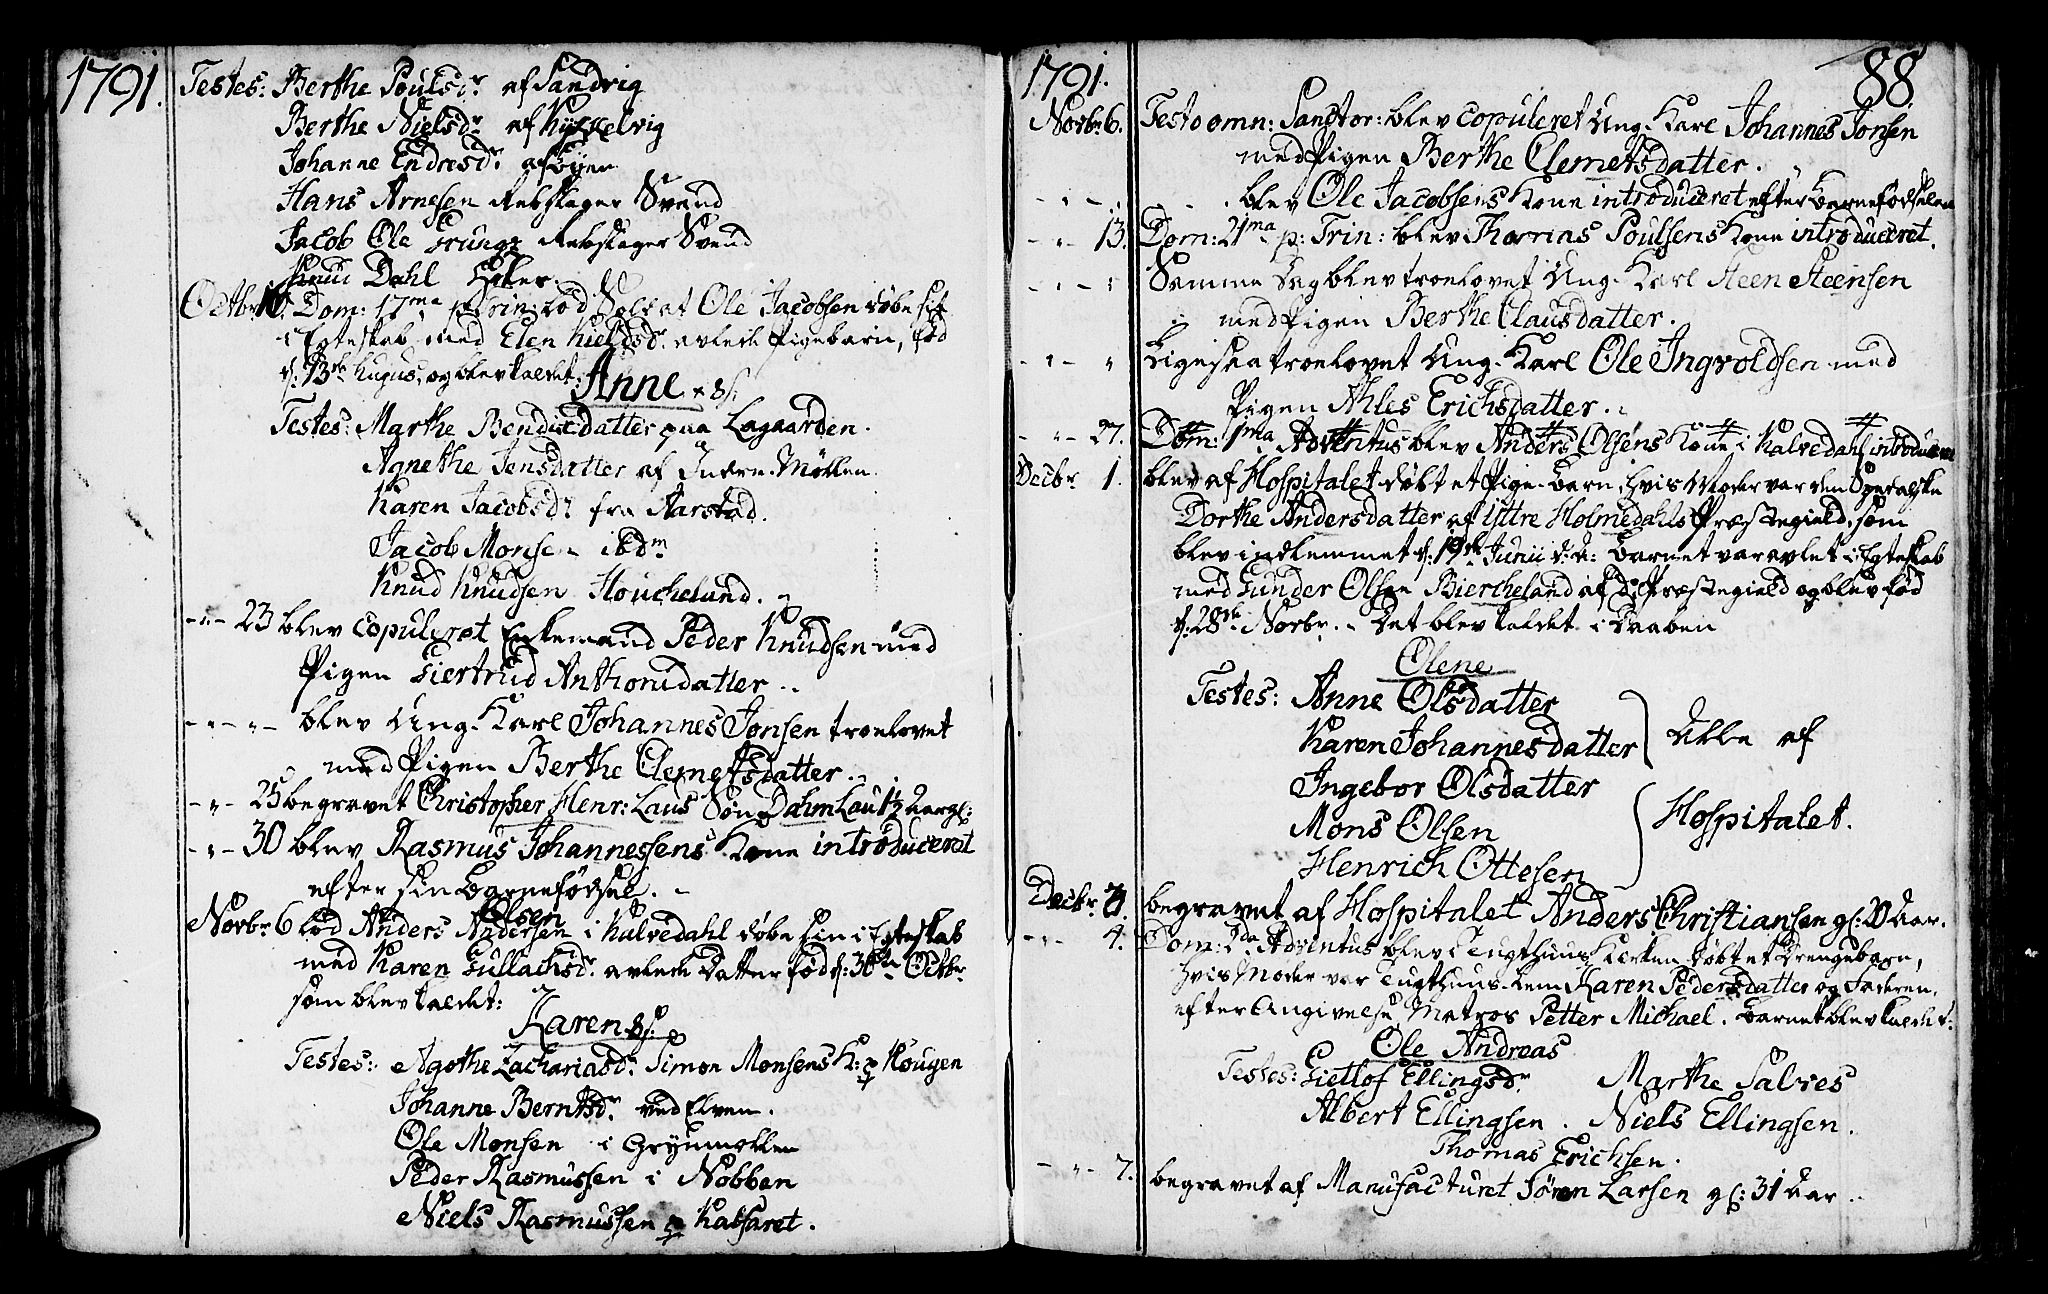 1791.
Testes: Berthe Poulsdr. af Sandvig
Berthe Nielsdr. af
Johanne Endresdr. af Øyen
Hans Arnesen Rebslager Svend
Jacob Ole Rebslager Svend
Knud Dahl
Octbr. 16. Dom: 17ma p. Trin: lod Soldat Ole Jacobsen døbe sit
i Egteskab med Elen Kieldsdr. avlede Pigebarn, fød
d: 13de hujus, og blev kaldet:
Anne
Testes: Marthe Bendixdatter paa Lagaarden.
Agnethe Jensdatter af Indre-Møllen
Karen Jacobsdr. fra Aarstad.
Jacob Monsen ibdm
Knud Knudsen Houcheland.
-"- 23 blev copuleret Enkemand Peder Knudsen med
Pigen Giertrud Anthonidatter.
-"-"- blev Ung-Karl Johannes Jonsen troelovet
med Pigen Berthe Clemetsdatter.
-"- 25 begravet Christopher Henr: Laus Søn Dahm Lau 1½ Aar gl:
-"- 30 blev Rasmus Johannessens Kone introduceret
efter sin Barnefødsel.
Novbr. 6 lod Anders Andersen Olsen i Kalvedahl døbe sin i Egteskab
med Karen Gullachsdr. avlede Datter fød d: 30te Octbr
som blev kaldet:
Karen
Testes: Agothe Zachariasdr. Simon Monsens K: p Hougen
Johanne Berntsdr. ved Elven.
Ole Monsen i Grynmøllen
Peder Rasmussen i Nobben
Niels Rasmussen p Kalfaret.
1791.
88
Novbr. 6. Festo omn: Sanctor: blev copuleret Ung-Karl Johannes Jonsen
med Pigen Berthe Clemetsdatter.
-"- blev Ole Jacobsens Kone introduceret efter Barnefødselen
-"- 13. Dom: 21ma p: Trin: blev Thomas Poulsens Kone introduceret.
-"- " Samme Dag blev troelovet Ung-Karl Steen Steensen
med Pigen Berthe Clausdatter.
-"- " Ligesaa troelovet Ung-Karl Ole Ingvoldsen med
Pigen Ahles Erichsdatter.
-"- 27. Dom: 1ma Adventus blev Anders Olsens Kone i Kalvedahl introduceret
Decbr. 1. blev af Hospitalet døbt et Pige-Barn, hvis Moder var den Spedalske
Dorthe Andersdatter af Yttre Holmedahls Præstegield, som
blev indlemmet d: 19de Junii d: A: Barnet var avlet i Egteskab
med Gunder Olsen Biercheland af do Præstegield og blev fød
d: 28de Novbr. Det blev kaldet i Daaben
Olene
Testes: Anne Olsdatter
Karen Johannesdatter
Ingebor Olsdatter
Mons Olsen
Henrich Ottesen
Alle af
Hospitalet.
Decbr. begravet af Hospitalet Anders Christiansen gl: 20 Aar.
-"- 4. Dom: 2da Adventus blev i Tugthuus Kirken døbt et Drengebarn,
hvis Moder var Tugthuus-Lem Karen Pedersdatter og Faderen,
efter Angivelse Matros Petter Michael. Barnet blev kaldet:
Ole Andreas
Testes: Gietlof Ellingsdr. Marthe Salves
Albert Ellingsen. Niels Ellingsen.
Thomas Erichsen.
-"- 7. begravet af Manufacturet Søren Larsen gl: 31 Aar.